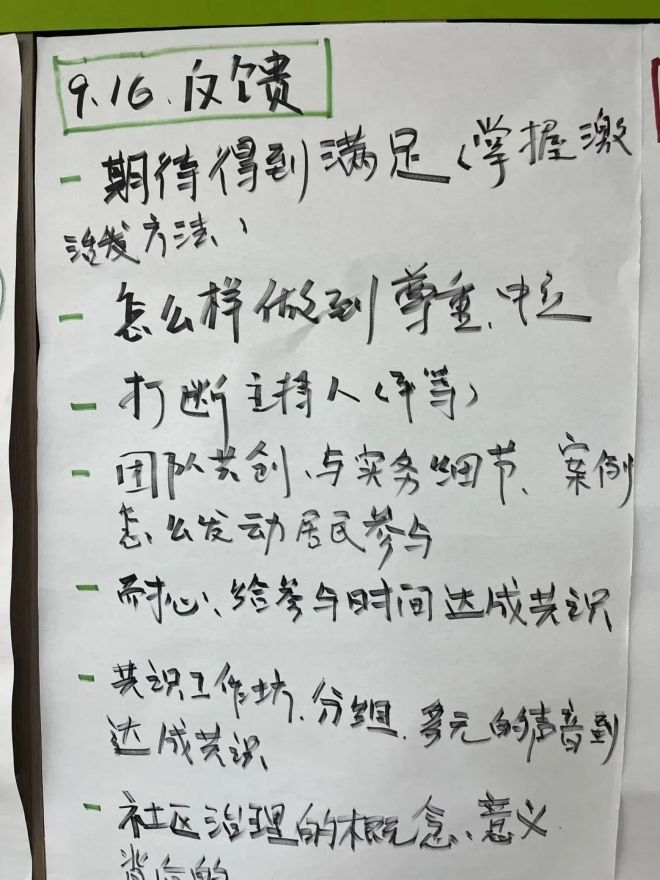 9.16.反馈
- 期待得到满足(掌握激
活发方法)
- 怎么样做到尊重、中立
- 打断主持人(平等)
- 团队共创、与实务细节、案例
怎么发动居民参与
- 耐心、给参与时间达成共识
- 共识工作坊、分组、多元的声音到
达成共识
- 社区治理的概念、意义
背后的